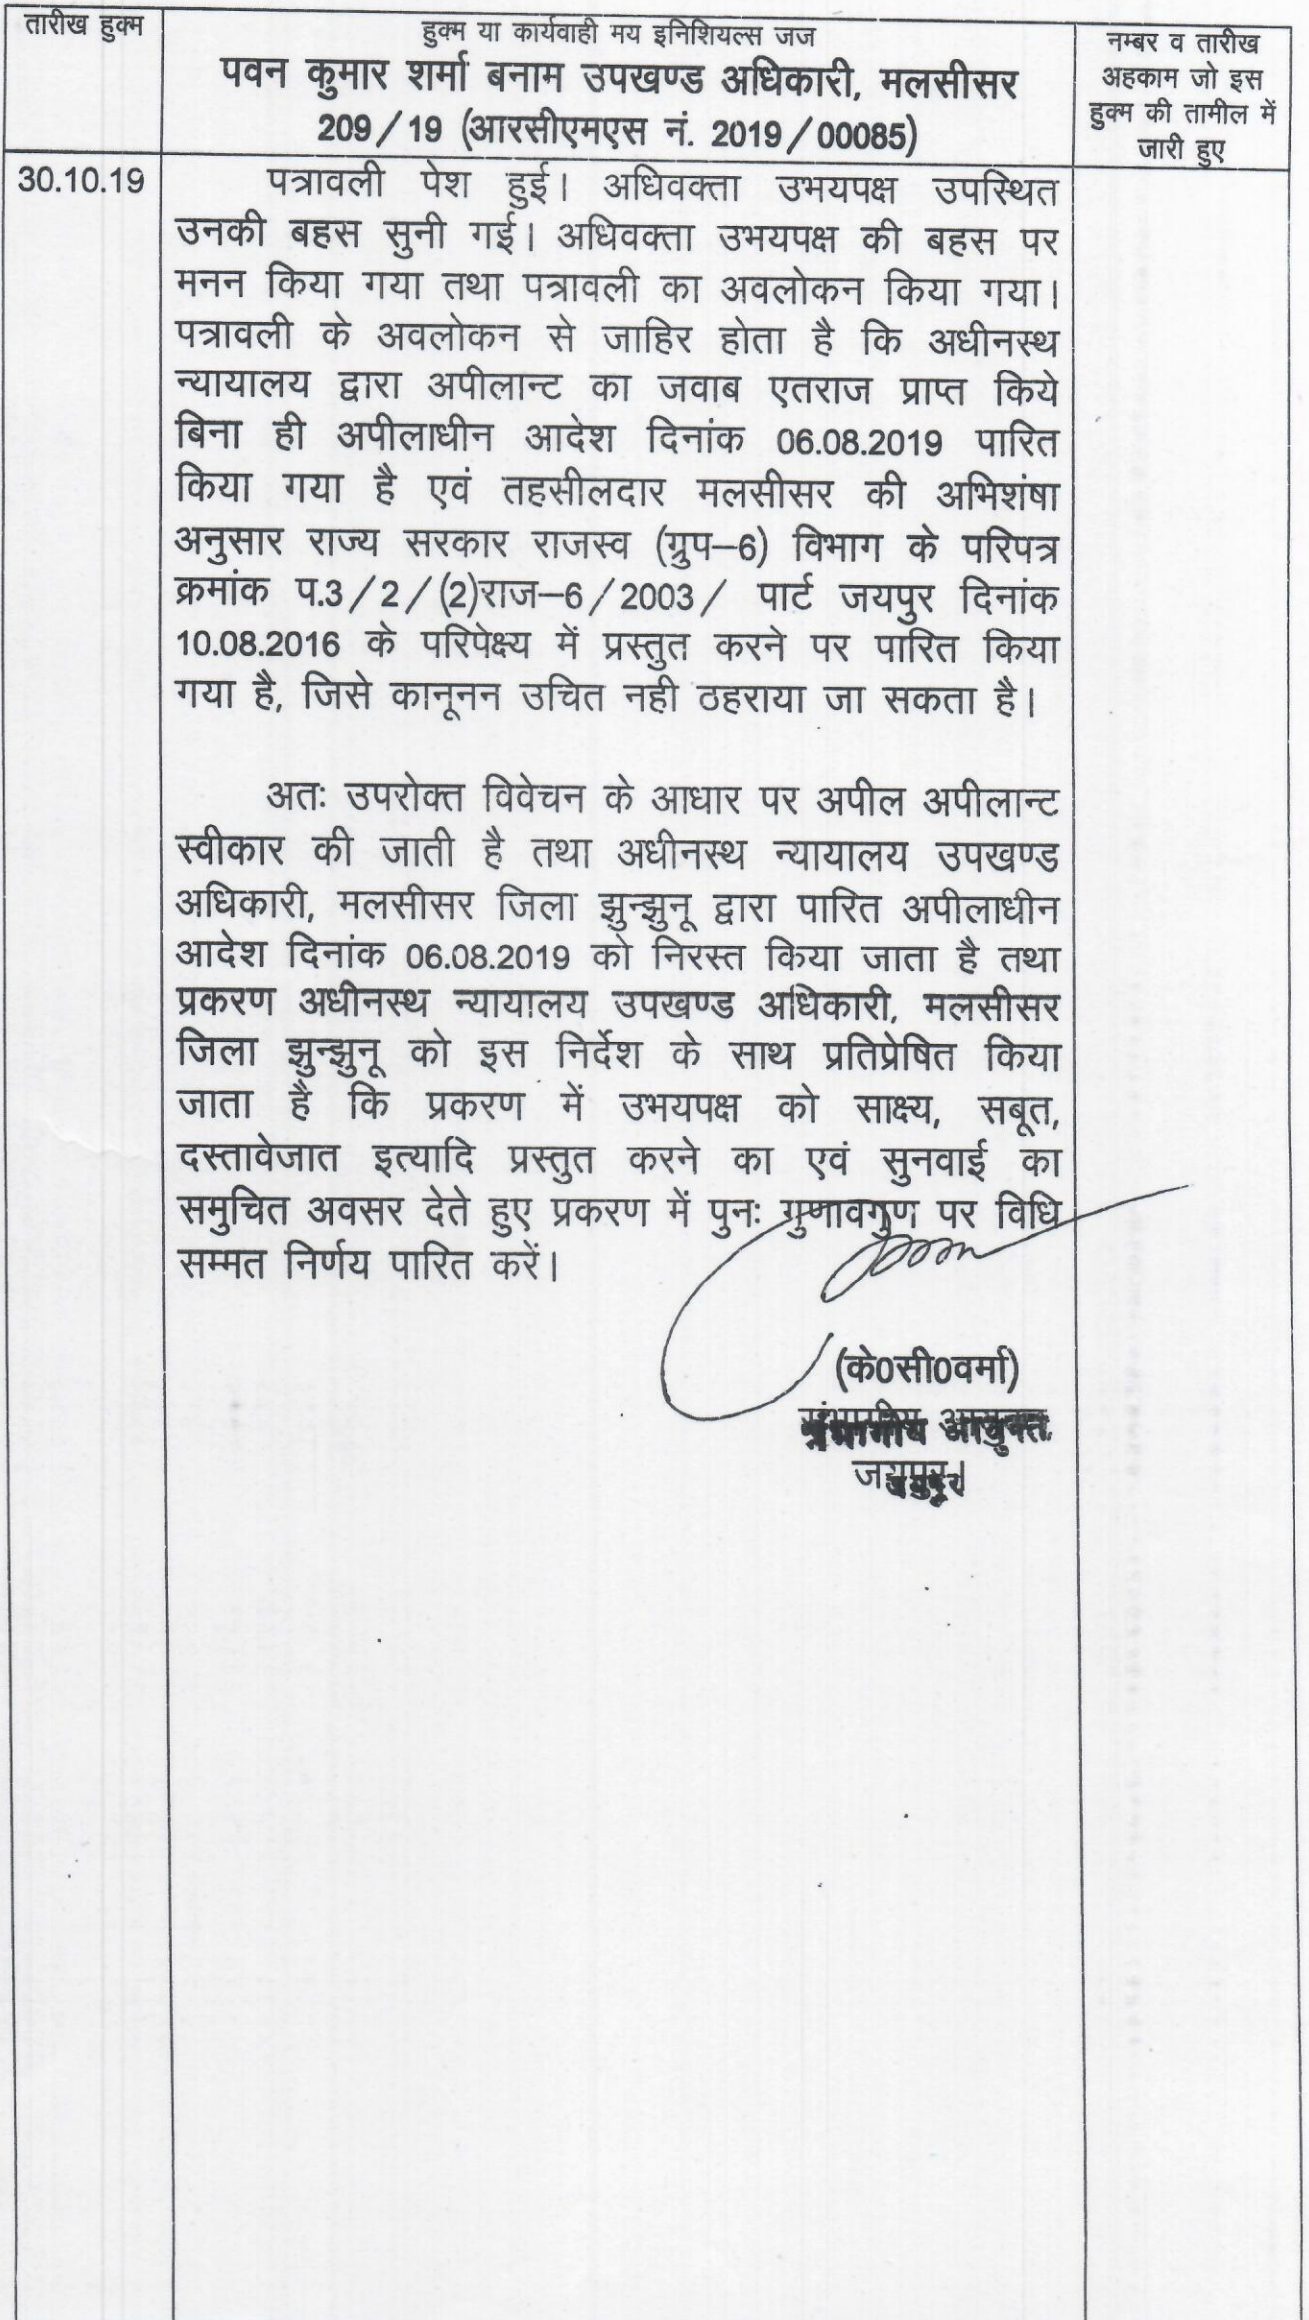 तारीख हुक्म
हुक्म या कार्यवाही मय इनिशियल्स जज
पवन कुमार शर्मा बनाम उपखण्ड अधिकारी, मलसीसर
209/19 (आरसीएमएस नं. 2019/00085)
नम्बर व तारीख
अहकाम जो इस
हुक्म की तामील में
जारी हुए
30.10.19
पत्रावली पेश हुई। अधिवक्ता उभयपक्ष उपस्थित
उनकी बहस सुनी गई। अधिवक्ता उभयपक्ष की बहस पर
मनन किया गया तथा पत्रावली का अवलोकन किया गया।
पत्रावली के अवलोकन से जाहिर होता है कि अधीनस्थ
न्यायालय द्वारा अपीलान्ट का जवाब एतराज प्राप्त किये
बिना ही अपीलाधीन आदेश दिनांक 06.08.2019 पारित
किया गया है एवं तहसीलदार मलसीसर की अभिशंषा
अनुसार राज्य सरकार राजस्व (ग्रुप–6) विभाग के परिपत्र
क्रमांक प.3/2/(2)राज–6/2003/ पार्ट जयपुर दिनांक
10.08.2016 के परिपेक्ष्य में प्रस्तुत करने पर पारित किया
गया है, जिसे कानूनन उचित नही ठहराया जा सकता है।
अतः उपरोक्त विवेचन के आधार पर अपील अपीलान्ट
स्वीकार की जाती है तथा अधीनस्थ न्यायालय उपखण्ड
अधिकारी, मलसीसर जिला झुन्झुनू द्वारा पारित अपीलाधीन
आदेश दिनांक 06.08.2019 को निरस्त किया जाता है तथा
प्रकरण अधीनस्थ न्यायालय उपखण्ड अधिकारी, मलसीसर
जिला झुन्झुनू को इस निर्देश के साथ प्रतिप्रेषित किया
जाता है कि प्रकरण में उभयपक्ष को साक्ष्य, सबूत,
दस्तावेजात इत्यादि प्रस्तुत करने का एवं सुनवाई का
समुचित अवसर देते हुए प्रकरण में पुनः गुणावगुण पर विधि
सम्मत निर्णय पारित करें।
(के0सी0वर्मा)
संभागीय आयुक्त,
जयपुर।